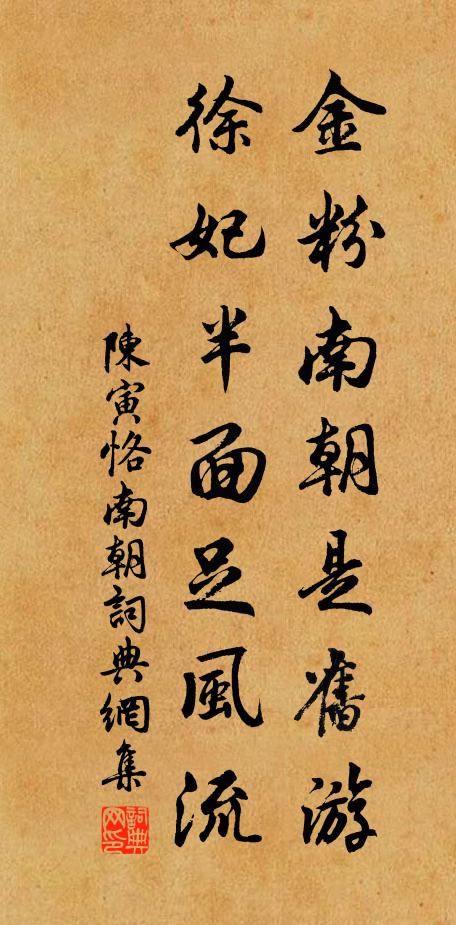 金粉南朝是舊游
徐妃半面足風流
陳寅恪南朝詞典網集
詞典网印